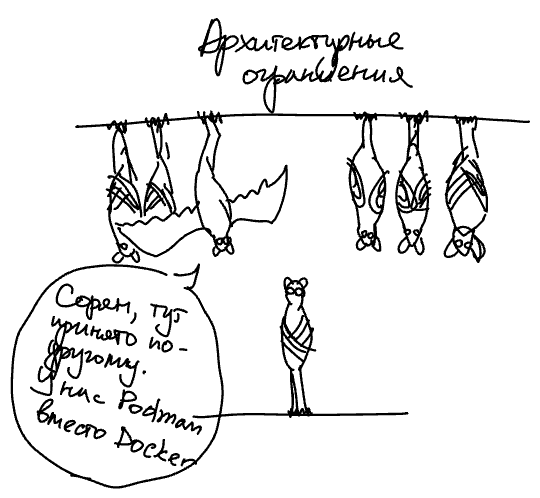 Архитектурные
ограничения
Сорян, тут
принято по-
другому.
У нас Podman
вместо Docker